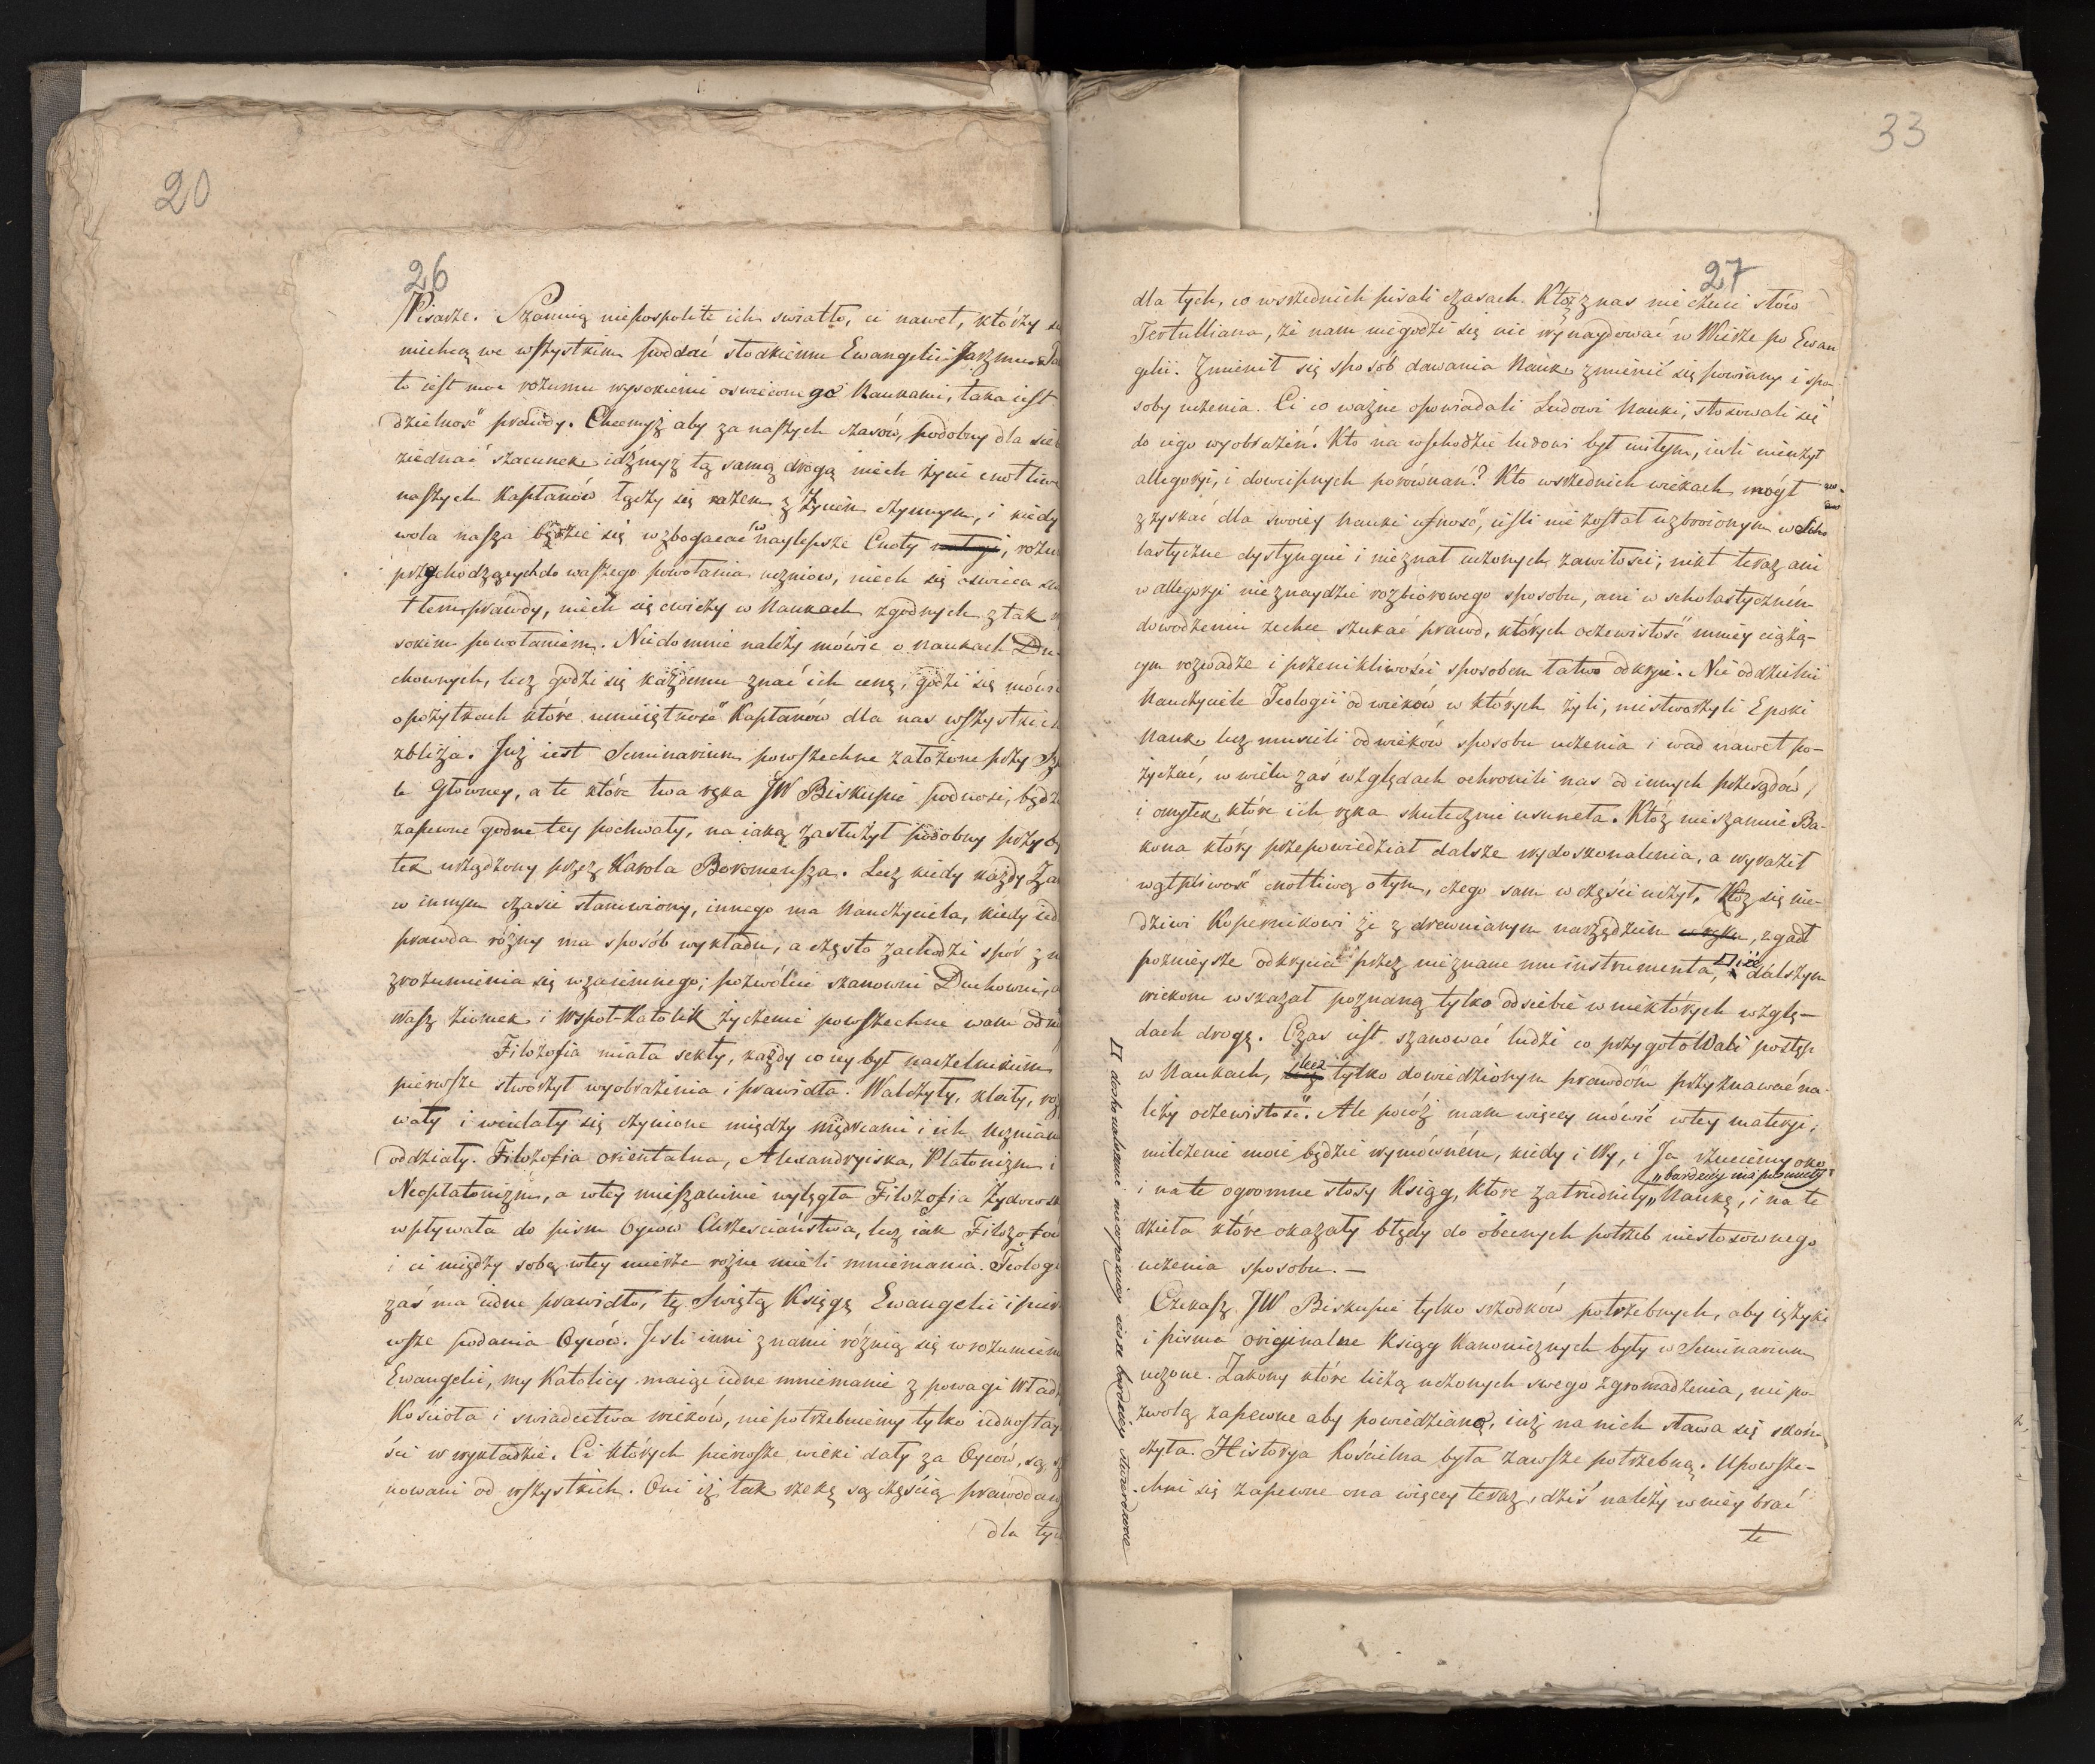 20
26
Pisarze. Szanuią niepospolite ich swiatło, ci nawet, którzy
niechcą we wszystkim poddać słodkiemu Ewangelii Jarzmu.
to iest moc rozumu wysokiemi oswieconego Naukami, taka iest
dzielność prawdy. Chcemyż aby za naszych czasów, podobny dla
ziednać szacunek idźmyż tą samą drogą niech życie cnotliwe
naszych Kapłanów łączy się razem z życiem czynnym, i kiedy
wola nasza będzie się wzbogacać w naylepsze Cnoty
przychodzących do waszego powołania uczniow, niech się oswieca
tłem prawdy, niech się cwiczy w Naukach zgodnych z tak
sokim powołaniem. Niedomnie należy mówic o naukach Du-
chownych, lecz godzi się każdemu znać ich cenę, godzi się
o pożytkach które umieiętność Kapłanów dla nas wszystkich
zbliża. Już iest Seminarium powszechne założone przy
le Główney, a te które twa ręka JW Biskupie podnosi,
zapewne godne tey pochwały, na iaką zasłużył podobny
tek urządzony przez Karola Boromeusza. Lecz kiedy każdy
w innym czasie stanowiony, innego ma Nauczyciela, kiedy
prawda różny ma sposób wykładu, a często zachodzi spór z
zrozumienia się wzaiemnego; pozwólcie szanowni Duchowni,
wasz ziomek i Wspoł-Katolik życzenie powszechne wam
Filozofia miała sekty, każdy co iey był naczelnikiem
pierwsze stworzył wyobrażenia i prawidła. Walczyły,
wały i wcielały się czynione między mędrcami i ich
oddziały. Filozofia orientalna, Alexandryiska, Platonizm i
Neoplatonizm, a wtey mieszaninie wylęgła Filozofia
wpływała do pism Oyców Chrzesciaństwa, lecz iak
i ci między sobą wtey mierze rożne mieli mniemania.
zaś ma iedne prawidło, tę Swiętą Księgę Ewangelii i
wsze podania Oyców. Jesli inni z nami różnią się
Ewangelii, my Katolicy maiąc iedne mniemanie z powagi
Kościoła i swiadectwa wieków, niepotrzebuiemy tylko
ści w wykładzie. Ci których pierwsze wieki dały za Oyców, są
nowani od wszystkich. Oni iż tak rzekę są częścią
dla
33
27
dla tych, co w srzednich pisali czasach. Któż z nas nie czuci słów
Tertulliana, że nam niegodzi się nic wynaydować w Wierze po Ewan
gelii. Zmienił się sposób dawania Nauk zmienić się powinny i spo-
soby uczenia. Ci co ważne opowiadali Ludowi Nauki, stosowali się
do iego wyobrażeń. Kto na wschodzie ludowi był miłym, iesli nieużył
allegoryi, i dowcipnych porównań? Kto w srzednich wiekach mógł
zyskać dla swoiey Nauki ufność, iesli nie został uzbroionym w Scho
lastyczne dystynguie i nieznał uczonych zawiłości; nikt teraz ani
w allegoryi nieznaydzie rozbiorowego sposobu, ani w scholastyczném
dowodzeniu zechce szukać prawd, których oczewistość mniey ciążą-
cym rozwadze i przenikliwości sposobem łatwo odkryie. Nie oddzielni
Nauczyciele Teologii od wieków w których żyli, niestworzyli Epoki
Nauk lecz musieli od wieków sposobu uczenia i wad nawet po-
życzać, w wielu zaś względach ochronili nas od innych przesądów,
i omyłek, które ich ręka skutecznie usuneła. Któż nieszanuie Ba-
kona który przepowiedział dalsze wydoskonalenia, a wyraził
wątpliwość cnotliwą o tym, czego sam w części użył. Któż się nie-
dziwi Kopernikowi że z drewnianym narzędziem w ręku, zgadł
poznieysze odkrycia przez nieznane mu instrumenta, iże dalszym
wiekom wskazał poznaną tylko od siebie w niektórych wzglę-
dach drogę. Czas iest szanować ludzi co przygotówali postęp
w Naukach, lecz tylko dowiedzionym prawdóm przyznawać na-
leży oczewistość. Ale pocóż mam więcey mówić wtey materyi,
milczenie moie będzie wymówném, kiedy i Wy, i Ja rzuciemy oko
i na te ogromne stosy Ksiąg, które zatrudniły „ Naukę, i na te
dzieła które okazały błędy do obecnych potrzeb niestosownego
uczenia sposobu. —
Czekasz JW Biskupie tylko srzodków potrzebnych, aby ięzyki
i pisma originalne Ksiąg Kanonicznych były w Seminarium
uczone. Zakony które liczą uczonych swego zgromadzenia, nie po-
zwolą zapewne aby powiedziano, iuż na nich sława się skoń-
czyła. Historya Kościelna była zawsze potrzebną. Upowsze-
chni się zapewne ona więcey teraz, dziś należy w niey brać
te